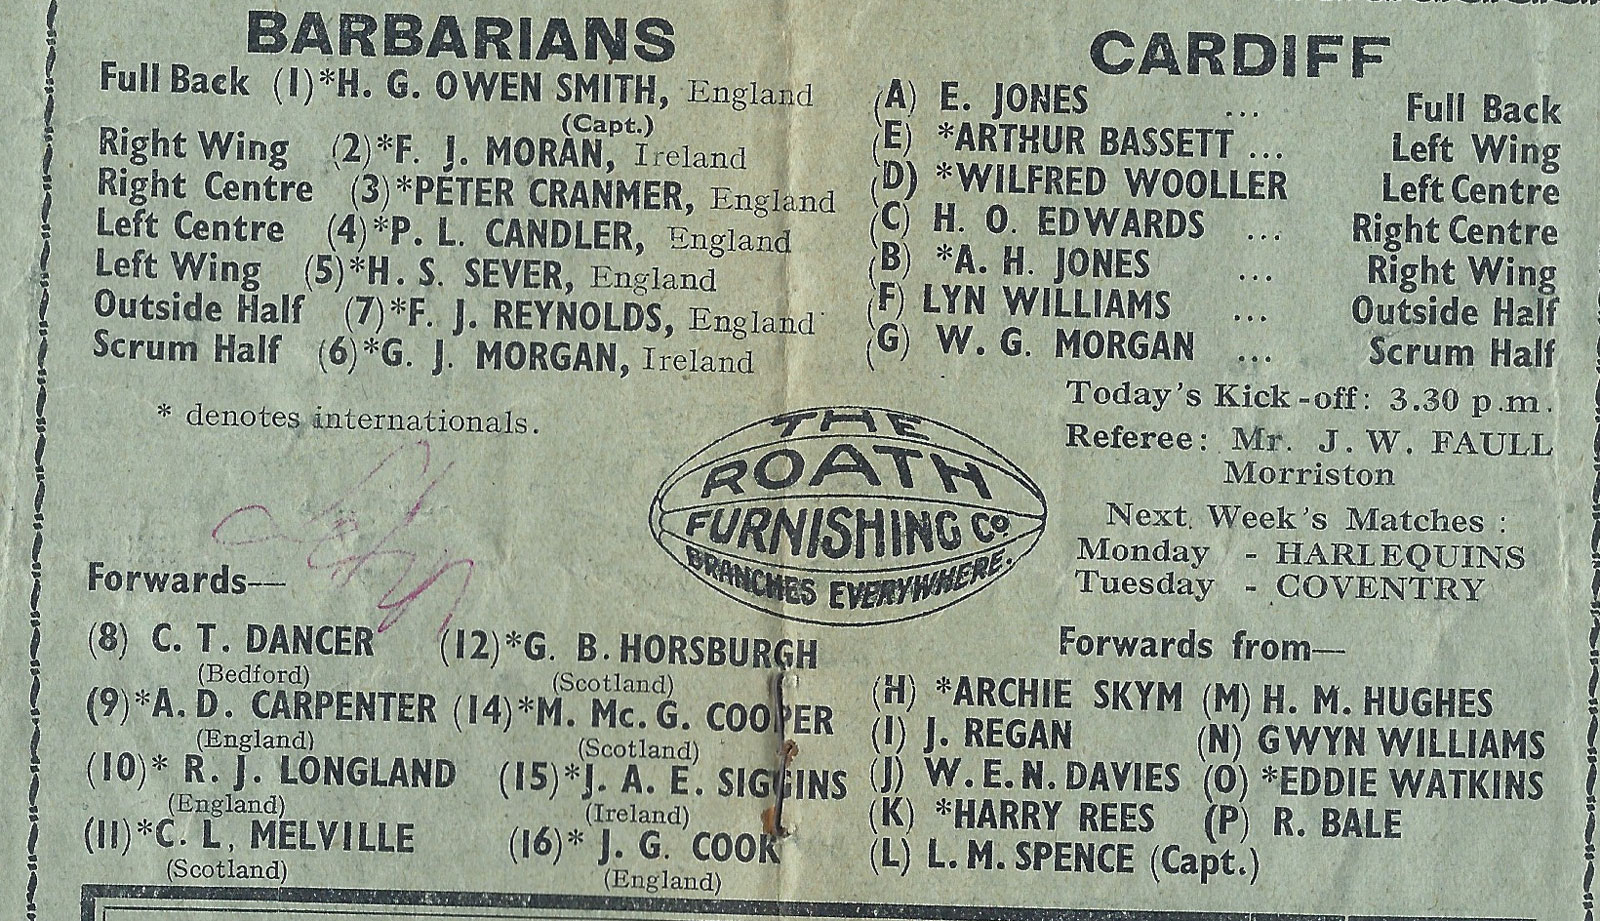 BARBARIANS
Full Back (1)*H. G. OWEN SMITH, England
(Capt.)
Right Wing (2)*F. J. MORAN, Ireland
Right Centre (3)*PETER CRANMER, England
Left Centre (4)*P. L. CANDLER, England
Left Wing (5)*H. S. SEVER, England
Outside Half (7)*F. J. REYNOLDS, England
Scrum Half (6)*G. J. MORGAN, Ireland
* denotes internationals.
Forwards—
(8) C. T. DANCER
(Bedford)
(9)*A. D. CARPENTER
(England)
(10)* R. J. LONGLAND
(England)
(11)*C. L. MELVILLE
(Scotland)
(12)*G. B. HORSBURGH
(Scotland)
(14)*M. Mc. G. COOPER
(Scotland)
(15)*J. A. E. SIGGINS
(Ireland)
(16)* J. G. COOK
(England)
THE
ROATH
FURNISHING Co
BRANCHES EVERYWHERE.
CARDIFF
(A) E. JONES ... Full Back
(E) *ARTHUR BASSETT ... Left Wing
(D) *WILFRED WOOLLER Left Centre
(C) H. O. EDWARDS ... Right Centre
(B) *A. H. JONES ... Right Wing
(F) LYN WILLIAMS ... Outside Half
(G) W. G. MORGAN ... Scrum Half
Today's Kick-off: 3.30 p.m.
Referee: Mr. J. W. FAULL
Morriston
Next Week's Matches :
Monday - HARLEQUINS
Tuesday - COVENTRY
Forwards from—
(H) *ARCHIE SKYM (M) H. M. HUGHES
(I) J. REGAN (N) GWYN WILLIAMS
(J) W. E. N. DAVIES (O) *EDDIE WATKINS
(K) *HARRY REES (P) R. BALE
(L) L. M. SPENCE (Capt.)